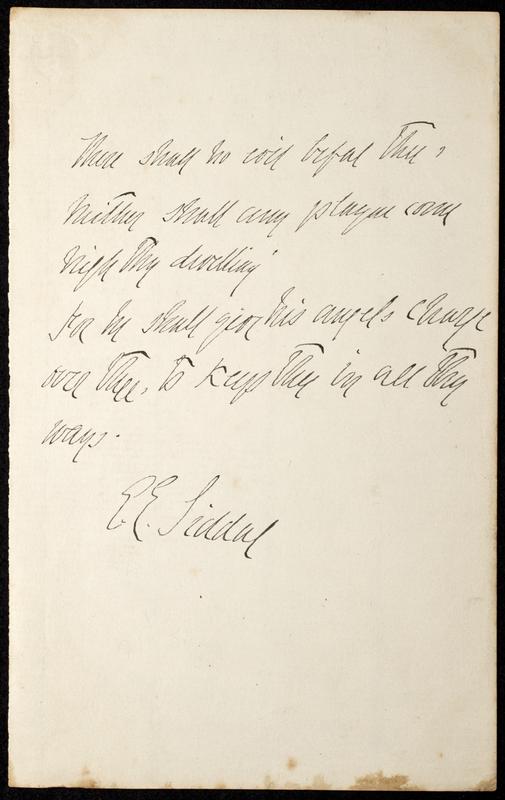 There shall no evil befal thee,
Neither shall any plague come
nigh thy dwelling
For he shall give his angels charge
over thee, to keep thee in all thy
ways.
E.E. Siddal